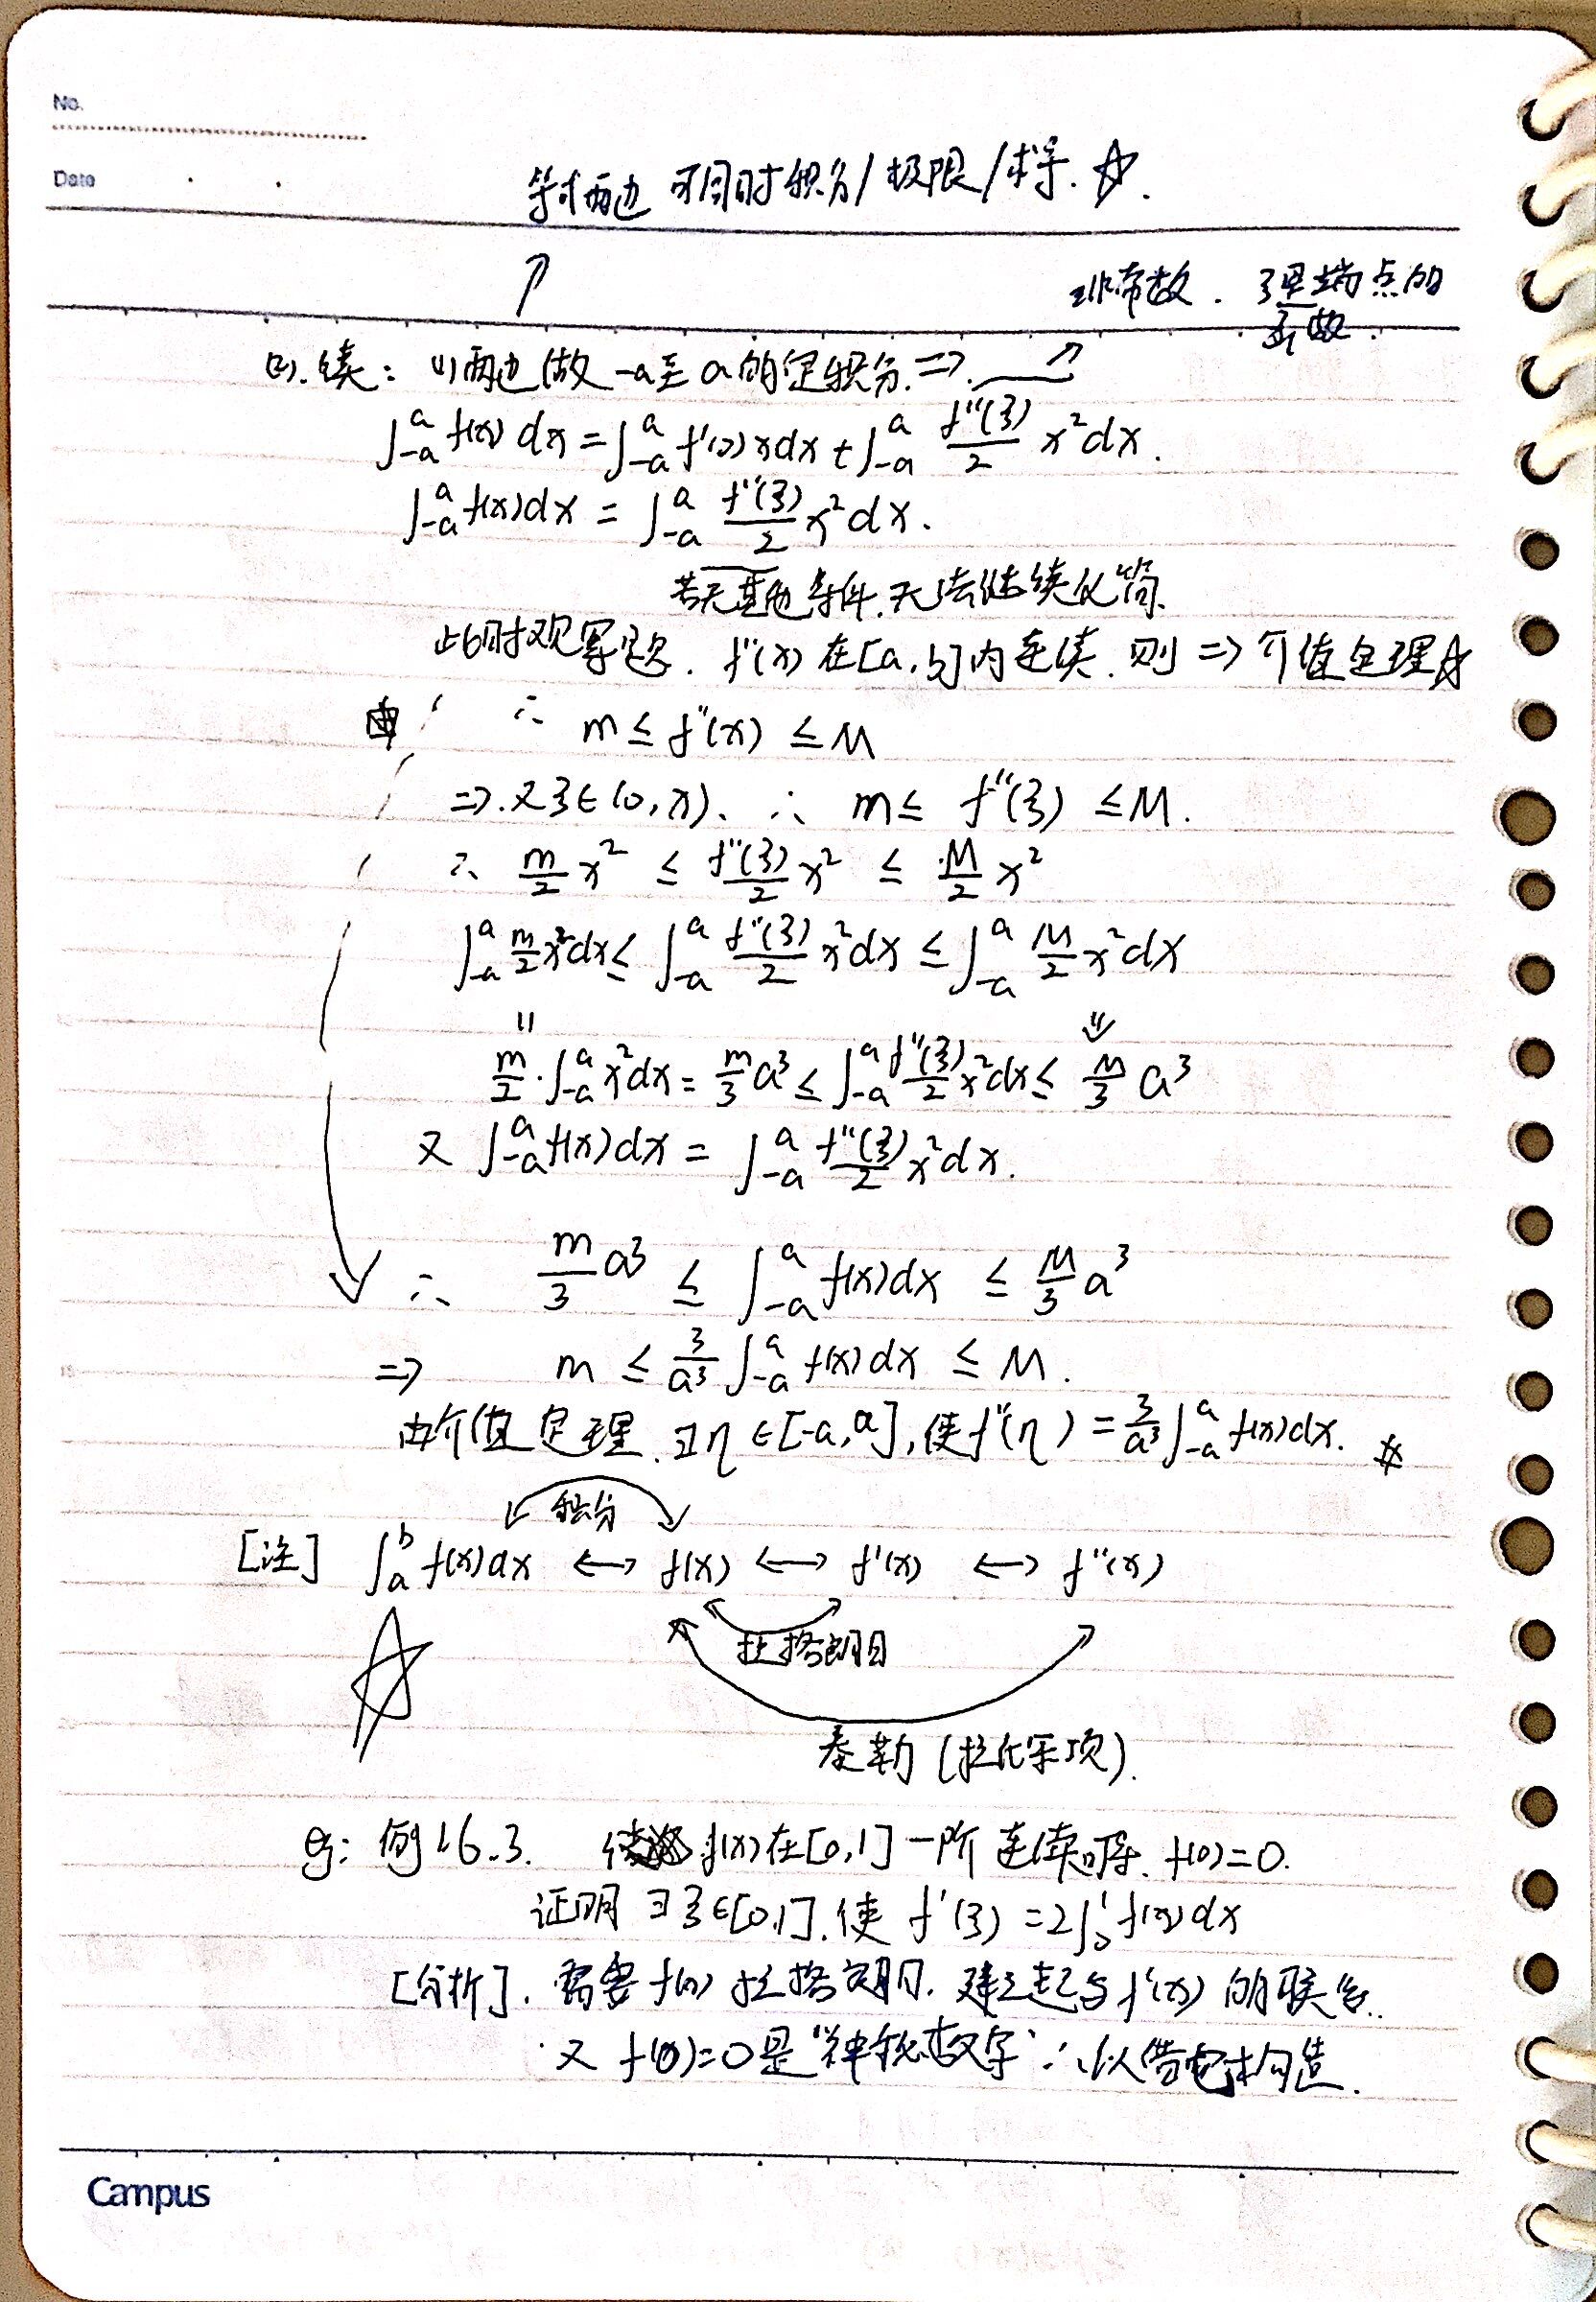 No.
Date
等式两边 可同时积分/极限/求导. ☆.
非常数. ξ是端点的
函数.
(2). 续: (1)两边做 -a至a的定积分. ⇒
∫_{-a}^{a} f(x) dx = ∫_{-a}^{a} f'(0) x dx + ∫_{-a}^{a} f''(ξ)/2 x² dx.
∫_{-a}^{a} f(x) dx = ∫_{-a}^{a} f''(ξ)/2 x² dx.
若无其他条件.无法继续化简.
此时观察题. f''(x) 在[a, b]内连续. 则 ⇒ 介值定理☆
∴ m ≤ f''(x) ≤ M
⇒. 又ξ∈(0, x). ∴ m ≤ f''(ξ) ≤ M.
∴ m/2 x² ≤ f''(ξ)/2 x² ≤ M/2 x²
∫_{-a}^{a} m/2 x² dx ≤ ∫_{-a}^{a} f''(ξ)/2 x² dx ≤ ∫_{-a}^{a} M/2 x² dx
m/2 · ∫_{-a}^{a} x² dx = m/3 a³ ≤ ∫_{-a}^{a} f''(ξ)/2 x² dx ≤ M/3 a³
又 ∫_{-a}^{a} f(x) dx = ∫_{-a}^{a} f''(ξ)/2 x² dx.
∴ m/3 a³ ≤ ∫_{-a}^{a} f(x) dx ≤ M/3 a³
⇒ m ≤ 3/a³ ∫_{-a}^{a} f(x) dx ≤ M.
由介值定理. ∃η∈[-a, a], 使f''(η) = 3/a³ ∫_{-a}^{a} f(x) dx. #
积分
[注] ∫_{a}^{b} f(x) dx ↔ f(x) ↔ f'(x) ↔ f''(x)
拉格朗日
泰勒 (拉氏余项).
eg: 例16.3. f(x)在[0,1]一阶连续可导. f(0)=0.
证明 ∃ξ∈[0,1]. 使 f'(ξ) = 2∫_{0}^{1} f(x) dx
[分析]. 需要 f(x) 拉格朗日. 建立起与f'(x) 的联系.
又 f(0)=0是"神秘数字" ∴以借它构造.
Campus